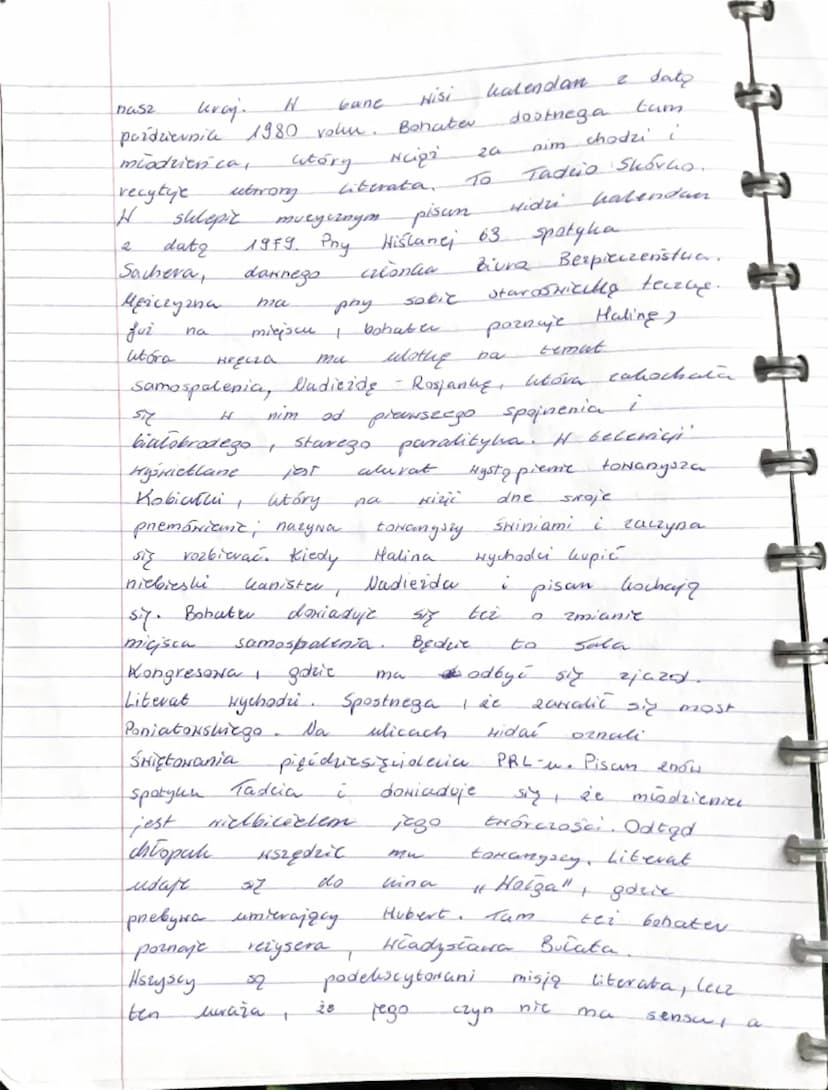 nasz kraj. W barze wisi kalendarz z datą
października 1980 roku. Bohater dostrzega tam
młodzieńca, który wciąż za nim chodzi i
recytuje utwory literata. To Tadzio Skórko.
W sklepie muzycznym pisarz widzi kalendarz
z datą 1979. Przy Wiślanej 63 spotyka
Sachera, dawnego członka Biura Bezpieczeństwa.
Mężczyzna ma przy sobie staroświecką teczkę.
Już na miejscu, bohater poznaje Halinę,
która wręcza mu ulotkę na temat
samospalenia, Nadieżdę - Rosjankę, która zakochała
się w nim od pierwszego spojrzenia i
białobrodego, starego paralityka. W telewizji
wyświetlane jest akurat wystąpienie towarzysza
Kobiałki, który na wizji drze swoje
przemówienie, nazywa towarzyszy świniami i zaczyna
się rozbierać. Kiedy Halina wychodzi kupić
niebieski kanister, Nadieżda i pisarz kochają
się. Bohater dowiaduje się też o zmianie
miejsca samospalenia. Będzie to Sala
Kongresowa, gdzie ma odbyć się zjazd.
Literat wychodzi. Spostrzega, że zawalił się most
Poniatowskiego. Na ulicach widać oznaki
świętowania pięćdziesięciolecia PRL-u. Pisarz znów
spotyka Tadzia i dowiaduje się, że młodzieniec
jest wielbicielem jego twórczości. Odtąd
chłopak wszędzie mu towarzyszy. Literat
udaje się do kina "Wołga", gdzie
przebywa umierający Hubert. Tam też bohater
poznaje reżysera, Władysława Bułata.
Wszyscy są podekscytowani misją literata, lecz
ten uważa, że jego czyn nie ma sensu, a